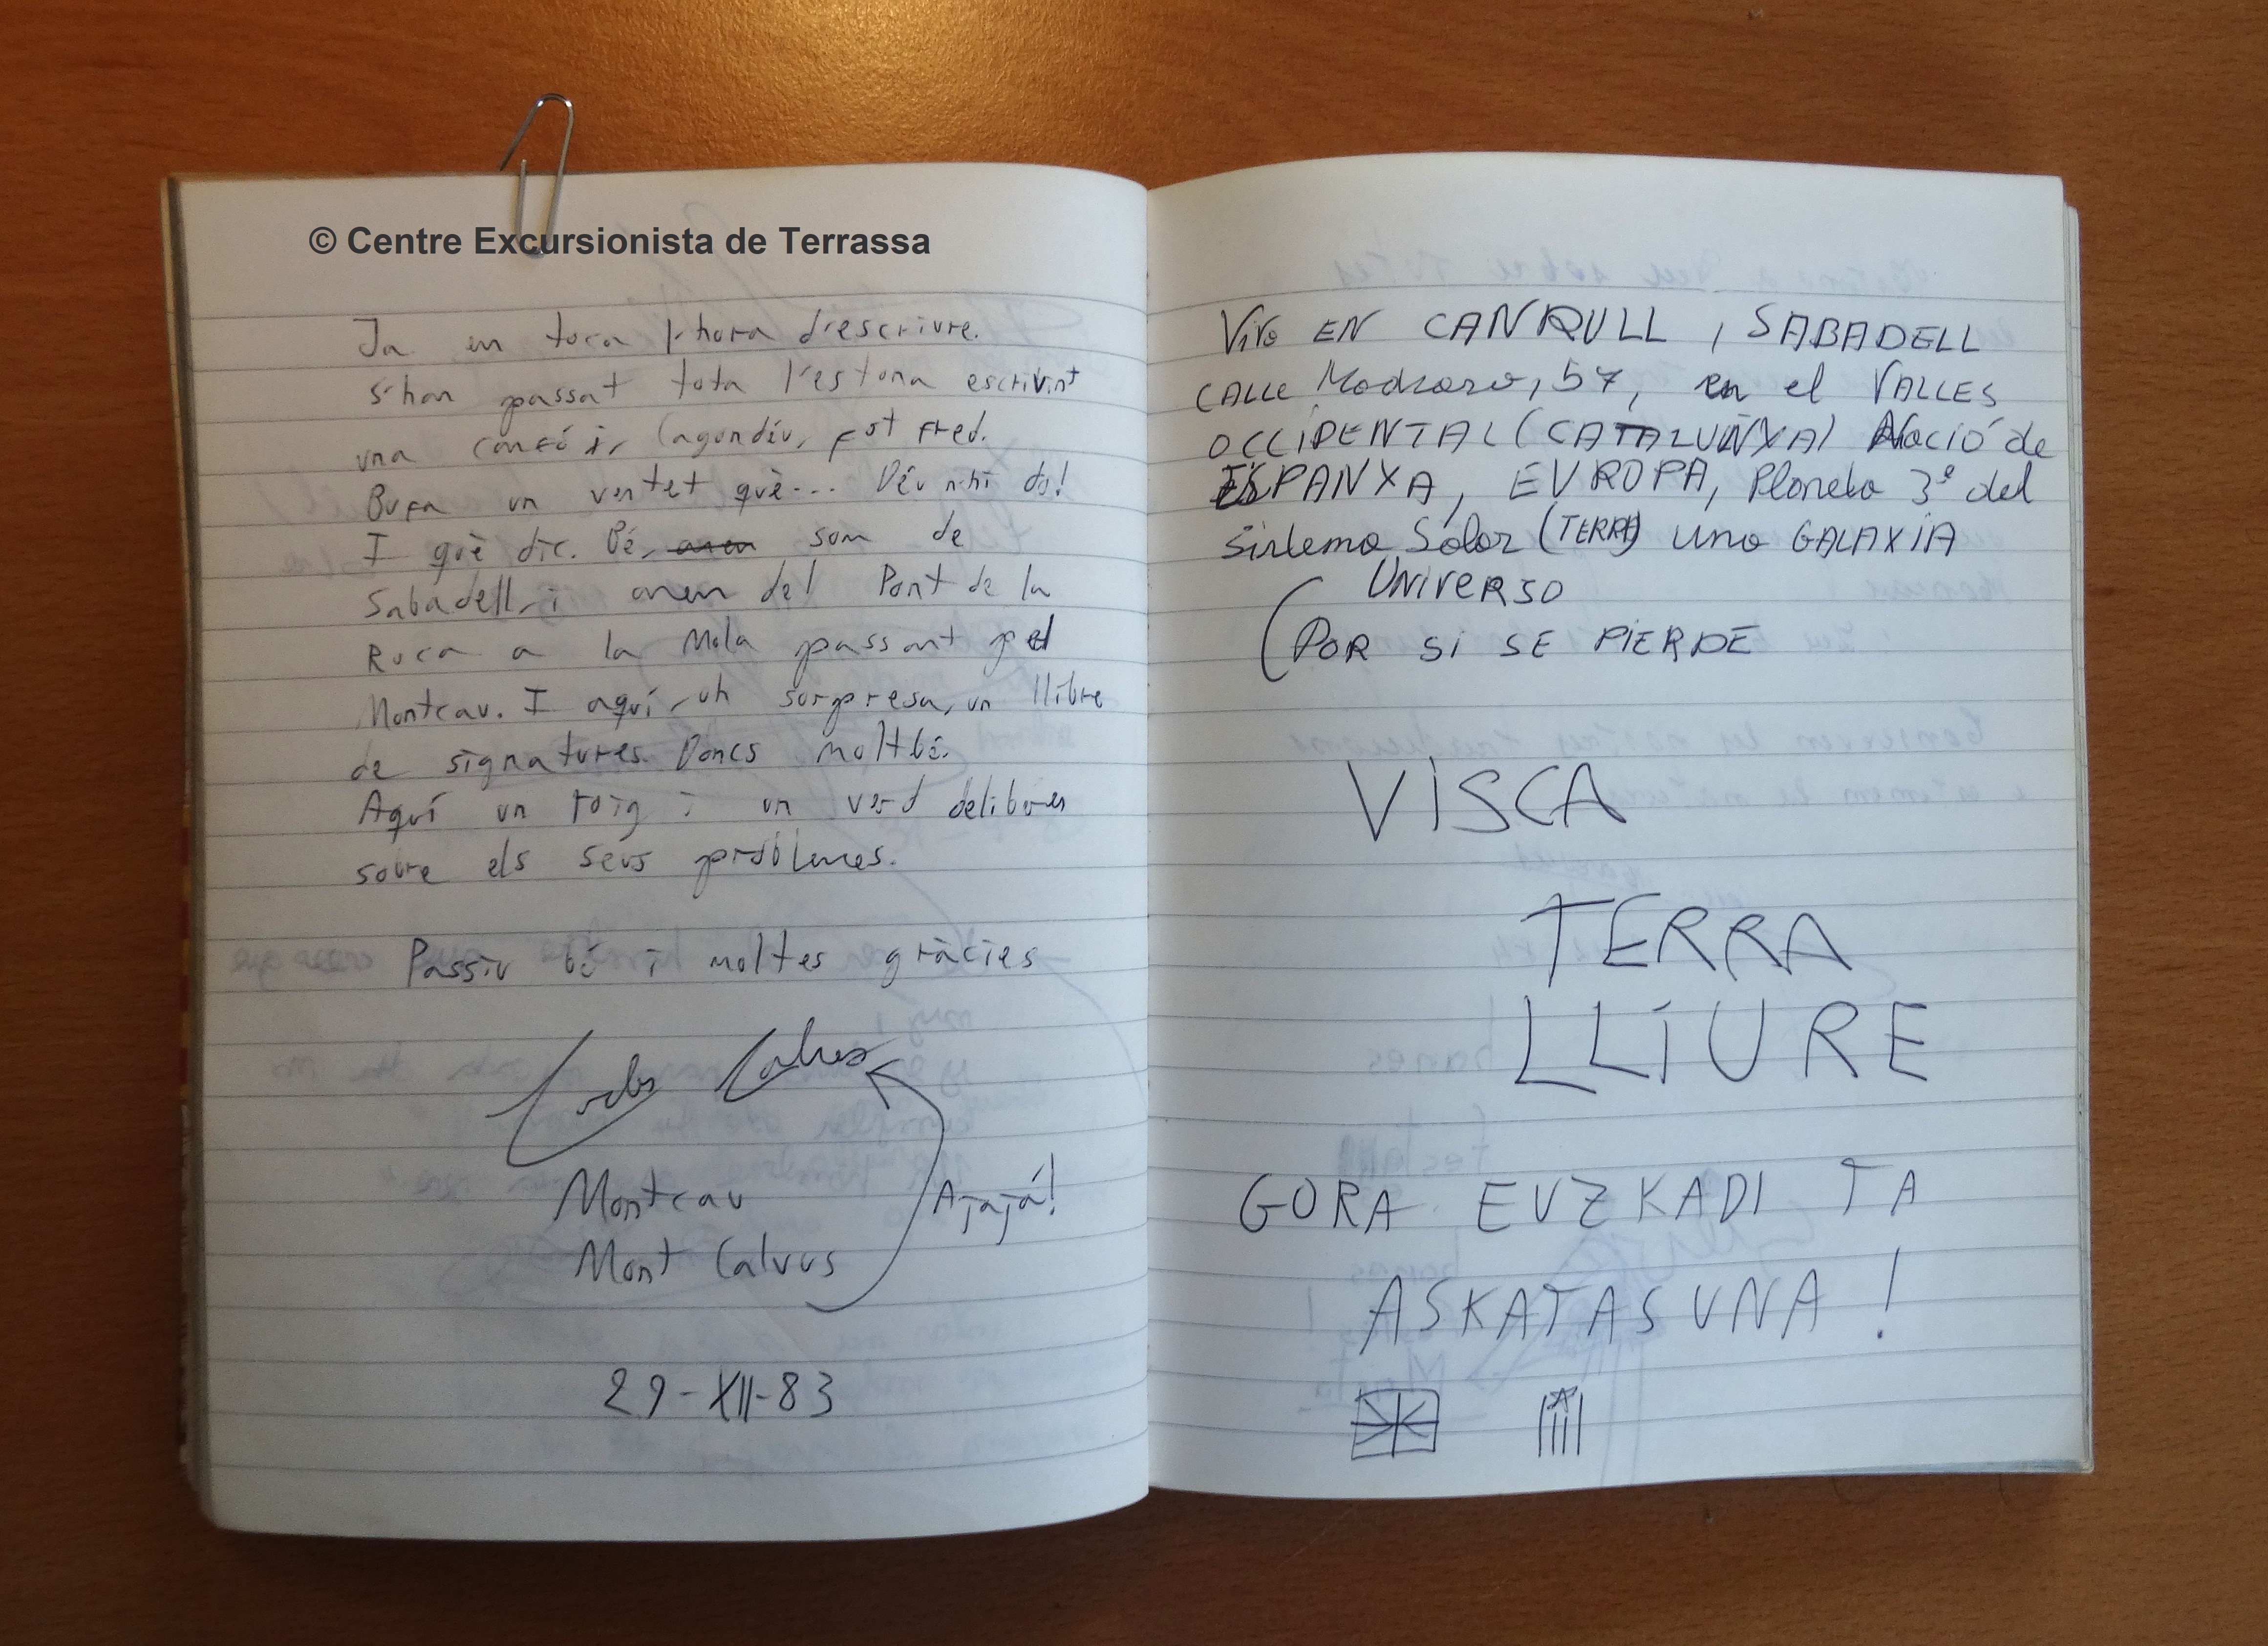 © Centre Excursionista de Terrassa
Ja em toca l'hora d'escriure.
S'han passat tota l'estona escrivint
una i, Cagondéu, fot fred.
Bufa un ventet què... Déu n'hi do!
I què dic. Bé, anem som de
Sabadell, i anem del Pont de la
Roca a la Mola passant pel
Montcau. I aquí, oh sorpresa, un llibre
de signatures. Doncs molt bé.
Aquí un roig i un verd deliberen
sobre els seus problemes.
Passiu bé i moltes gràcies
Montcau
Ajajá!
Mont Calvus
29-XII-83
Vivo EN CANRULL, SABADELL
CALLE 57, en el VALLES
OCCIDENTAL (CATALUÑXA) Nació de
ESPANXA, EUROPA, Planeta 3º del
Sistema Solar (TERRA) una GALAXIA
UNIVERSO
(POR SI SE PIERDE
VISCA
TERRA
LLIURE
GORA EUZKADI TA
ASKATASUNA!